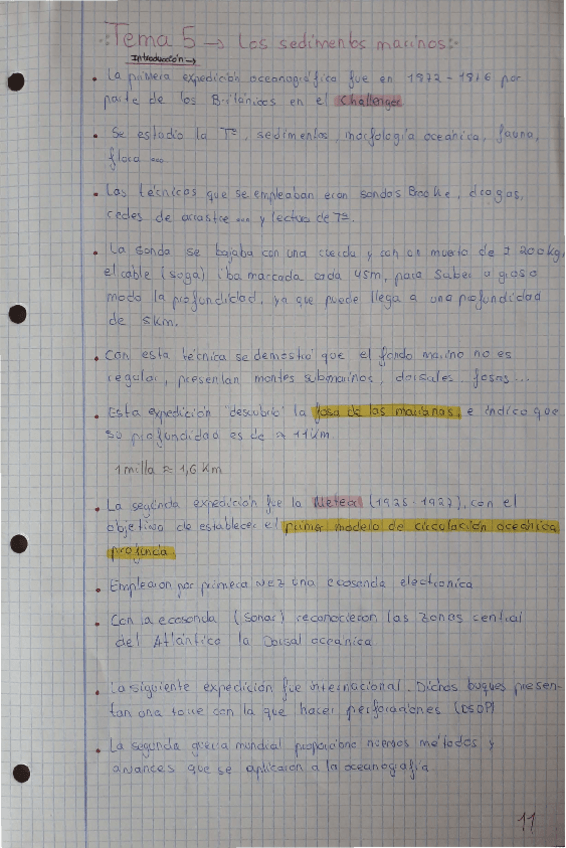 Tema 5 → Los sedimentos marinos:
Introducción →
• La primera expedición oceanográfica fue en 1872-1876 por
parte de los Británicos en el Challenger
• Se estudio la Tª, sedimentos, morfología oceánica, fauna,
flora ...
• Las técnicas que se empleaban eran sondas Brooke, dragas,
redes de arrastre ... y lectura de Tª.
• La sonda se bajaba con una cuerda y con un muerto de 200kg,
el cable (soga) iba marcada cada 45m, para saber a groso
modo la profundidad, ya que puede llega a una profundidad
de 5km.
• Con esta técnica se demostró que el fondo marino no es
regular, presentan montes submarinos, dorsales, fosas...
• Esta expedición descubrió la fosa de las marianas, e indico que
su profundidad es de ≈ 11km
1 milla ≈ 1,6 Km
• La segunda expedición fue la Meteor (1925-1927), con el
objetivo de establecer el primer modelo de circulación oceánica
profunda
• Emplearon por primera vez una ecosonda electronica
• Con la ecosonda (sonar) reconocieron las zonas central
del Atlántico la Dorsal oceánica
• La siguiente expedición fue internacional. Dichos buques presen-
tan una torre con la que hacer perforaciones (DSDP)
• La segunda guerra mundial proporciono nuevos métodos y
avances que se aplicaron a la oceanografía
11